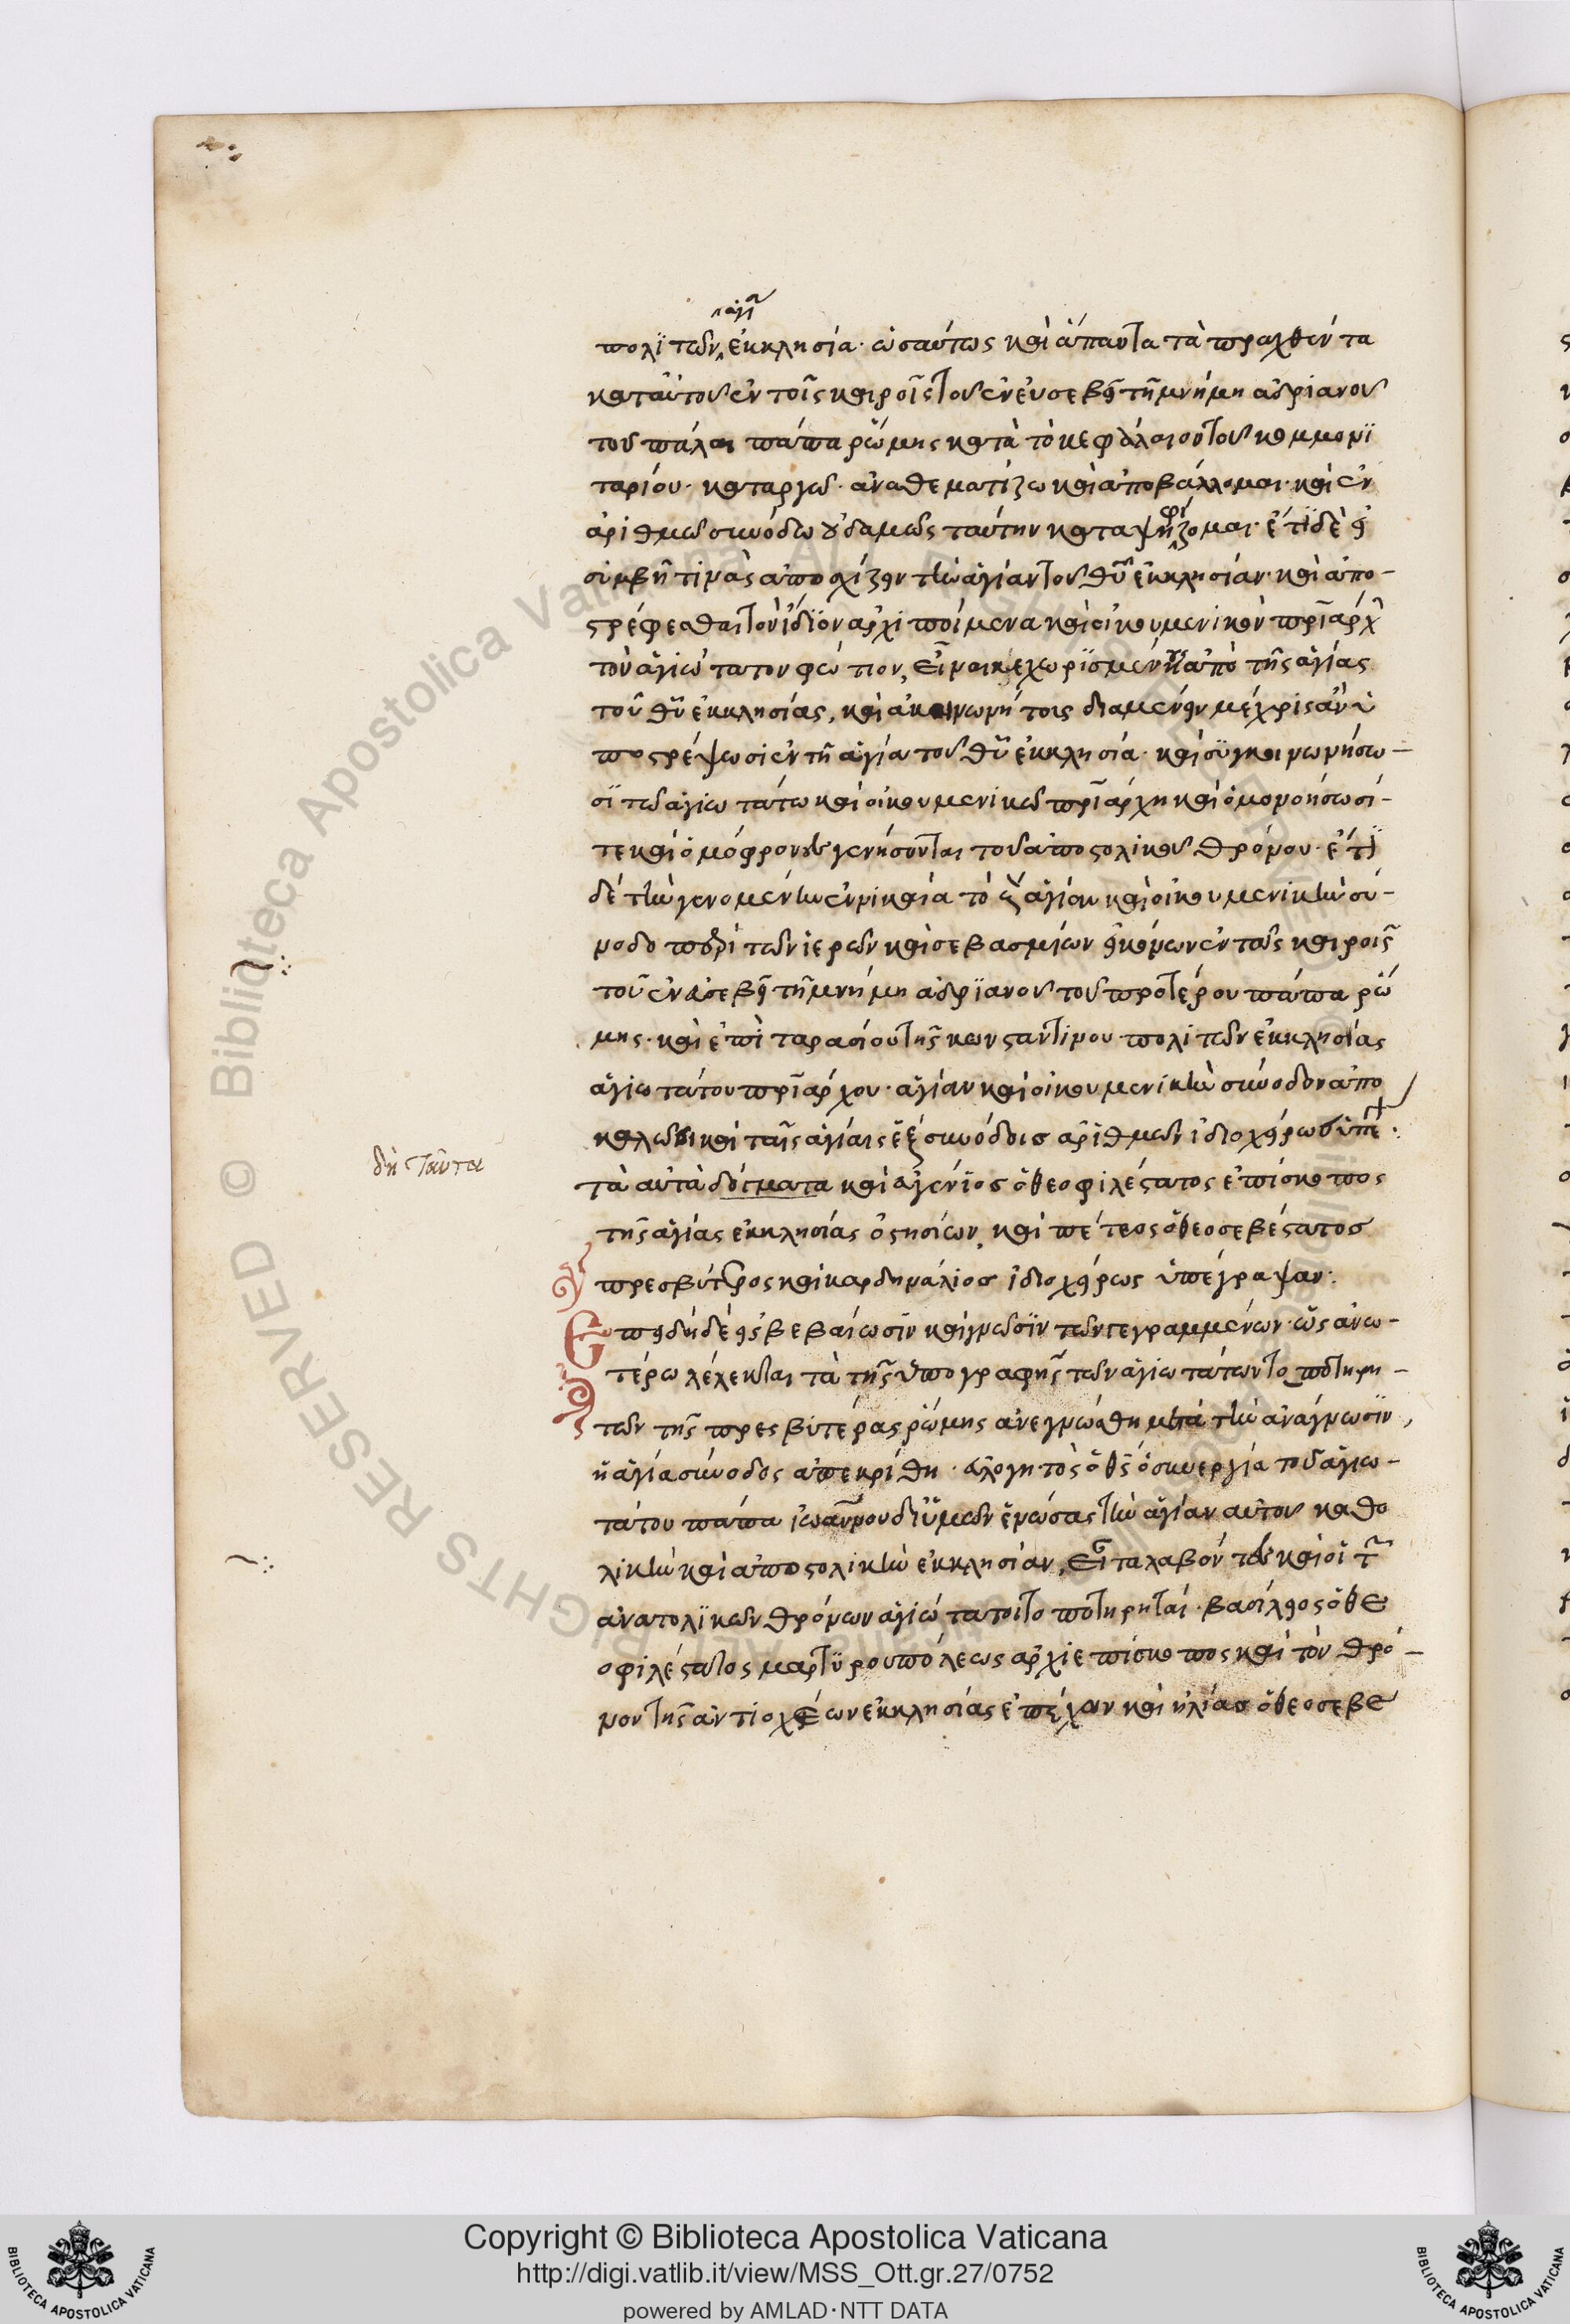 ἁγί
πολϊτῶν ἐκκλησία· ὡσαύτως καὶ ἅπαντα τὰ πραχθέντα
κατ' αὐτοῦ ἐν τοῖς καιροῖς τοῦ ἐν εὐσεβεῖ τῆ μνήμη ἀδριανοῦ
τοῦ πάλαι πάπα ῥώμης κατὰ τὸ κεφάλαιον τοῦ κομμονϊ
ταρίου· καταργῶ· ἀναθεματίζω καὶ ἀποβάλλομαι· καὶ ἐν
ἀριθμῶ συνόδω οὐδαμῶς ταύτην καταψηφίζομαι· ἔτϊ δὲ εἰ
συμβῆ τινὰς ἀποσχίζειν τὴν ἁγίαν τοῦ θῦ ἐκκλησίαν· καὶ ἀπο-
στρέφεσθαι τὸν ἴδϊον ἀρχιποίμενα καὶ οἰκουμενικὸν πριάρχ
τὸν ἁγιώτατον φώτιον, εἶναι κεχωρϊσμένους ἀπὸ τῆς ἁγίας
τοῦ θῦ ἐκκλησίας, καὶ ἀκοινωνήτοις διαμένειν μέχρις ἂν ὑ
ποστρέψωσι ἐν τῆ ἁγία τοῦ θῦ ἐκκλησία· καὶ συγκοινωνήσω-
σϊ τῶ ἁγιωτάτω καὶ οἰκουμενικῶ πριάρχη καὶ ὁμονοήσωσί-
τε καὶ ὁμόφρονες γενήσονται τοῦ ἀποστολικοῦ θρόνου· ἔτϊ
δέ τὴν γενομένην ἐν νικαία τὸ ζ ἁγίαν καὶ οἰκουμενικὴν σύ-
νοδο περὶ τῶν ἱερῶν καὶ σεβασμίων εἰκόνων ἐν τοῖς καιροῖς
τοῦ ἐν εὐσεβεῖ τῆ μνήμη ἀδρϊανοῦ τοῦ προτέρου πάπα ῥώ
μης· καὶ ἐπὶ ταρασίου τῆς κωνσταντινουπολιτῶν ἐκκλησίας
ἁγιωτάτου πριάρχου· ἁγίαν καὶ οἰκουμενικὴν σύνοδον ἀπο
καλῶ καὶ ταῖς ἁγίαις ἓξ συνόδοις ἀριθμῶν ἰδιοχείρως ὑπε·
δὴ ταῦτα
τὰ αὐτὰ δόγματα καὶ εὐγένϊος ὁ θεοφιλέστατος ἐπίσκοπος
τῆς ἁγίας ἐκκλησίας ὀστησίων, καὶ πέτρος ὁ θεοσεβέστατος
πρεσβύτερος καὶ καρδηνάλιος ἰδιοχείρως ὑπέγραψαν·
Ἐπειδὴ δὲ εἰς βεβαίωσϊν καὶ γνῶσϊν τῶν γεγραμμένων· ὡς ἀνω-
τέρω λέλεκται τὰ τῆς ὑπογραφῆς τῶν ἁγιωτάτων τοποτηρη-
τῶν τῆς πρεσβυτέρας ῥώμης ἀνεγνώσθη μετὰ τὴν ἀνάγνωσϊν,
ἡ ἁγία σύνοδος ἀπεκρίθη· εὐλογητὸς ὁ θς ὁ συνεργία τοῦ ἁγιω-
τάτου πάπα ἰωάννου δι' ὑμῶν ἑνώσας τὴν ἁγίαν αὐτοῦ καθο
λικὴν καὶ ἀποστολικὴν ἐκκλησίαν, Εἶτα λαβόντες καὶ οἱ τ
ἀνατολϊκῶν θρόνων ἁγιώτατοι τοποτηρηταί· βασίλειος ὁ θε
οφιλέστατος μαρτϋρουπόλεως ἀρχιεπίσκοπος καὶ τὸν θρό-
νον τῆς ἀντιοχέων ἐκκλησίας ἐπέχων καὶ ἠλίας ὁ θεοσεβε
Copyright © Biblioteca Apostolica Vaticana
http://digi.vatlib.it/view/MSS_Ott.gr.27/0752
powered by AMLAD·NTT DATA